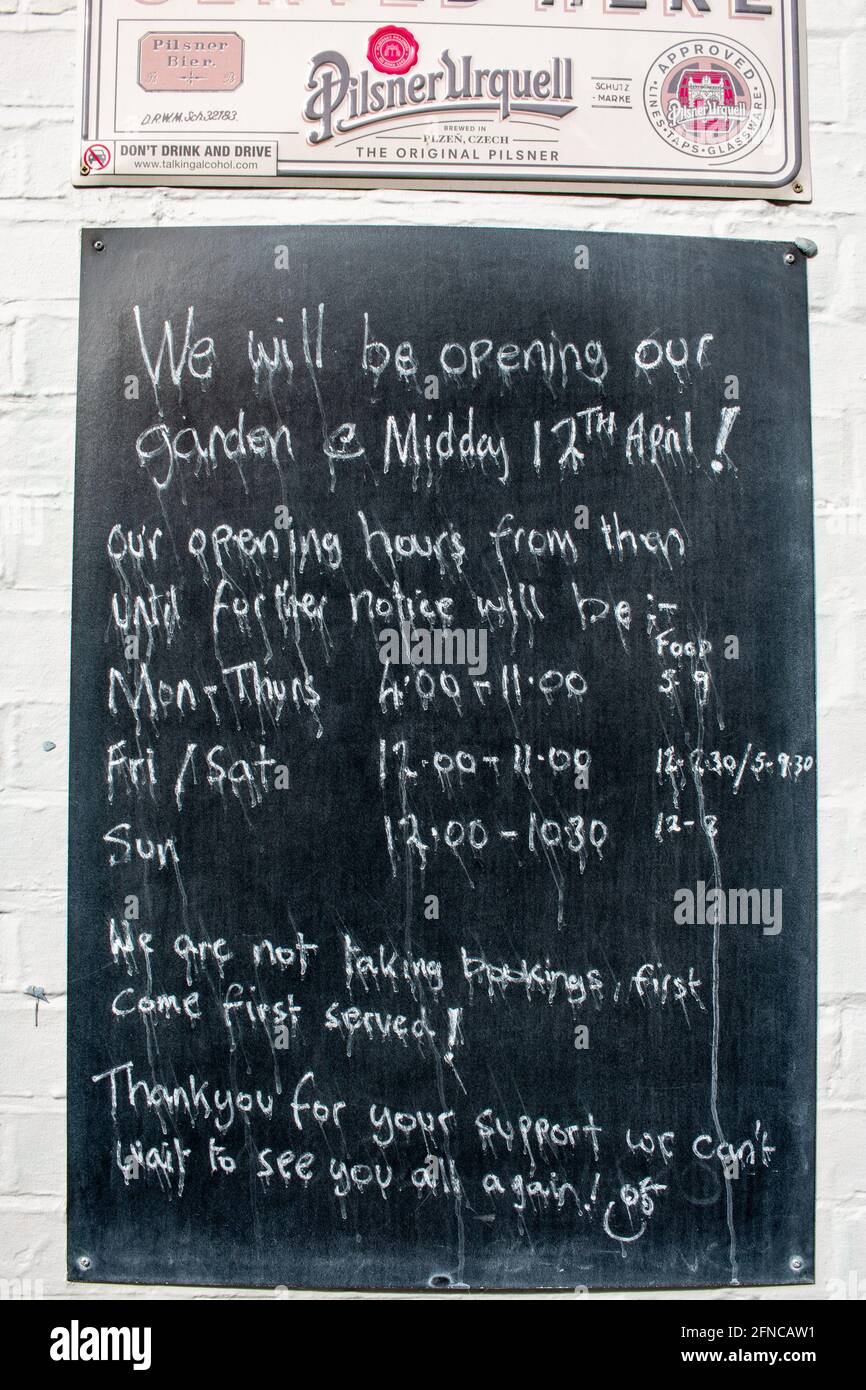 SERVED HERE
Pilsner
Bier.
D.R.W.M. Sch: 32783
DON'T DRINK AND DRIVE
www.talkingalcohol.com
Pilsner Urquell
BREWED IN
PLZEŇ, CZECH
THE ORIGINAL PILSNER
SCHUTZ
-MARKE
APPROVED
Pilsner Urquell
LINES • TAPS • GLASSWARE
We will be opening our
garden @ Midday 12TH April!
our opening hours from then
until further notice will be :-
FOOD
Mon-Thurs 4:00-11:00 5-9
Fri/Sat 12.00-11.00 12-2.30/5-9.30
Sun 12:00-10:30 12-8
We are not taking bookings, first
Come first served!
Thankyou for your support we can't
wait to see you all again!
alamy
Image ID: 2FNCAW1
www.alamy.com